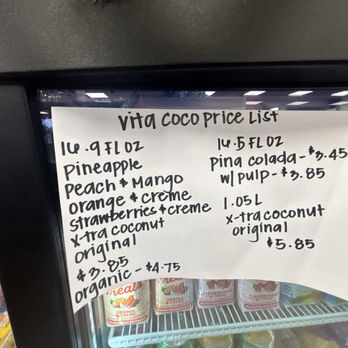 Vita Coco Price List
16.9 FL OZ
Pineapple
Peach & Mango
Orange & Creme
Strawberries & Creme
X-tra Coconut
Original
$3.85
Organic - $4.75
16.5 FL OZ
Pina Colada - $3.45
w/ Pulp - $3.85
1.05 L
X-tra Coconut
Original
$5.85